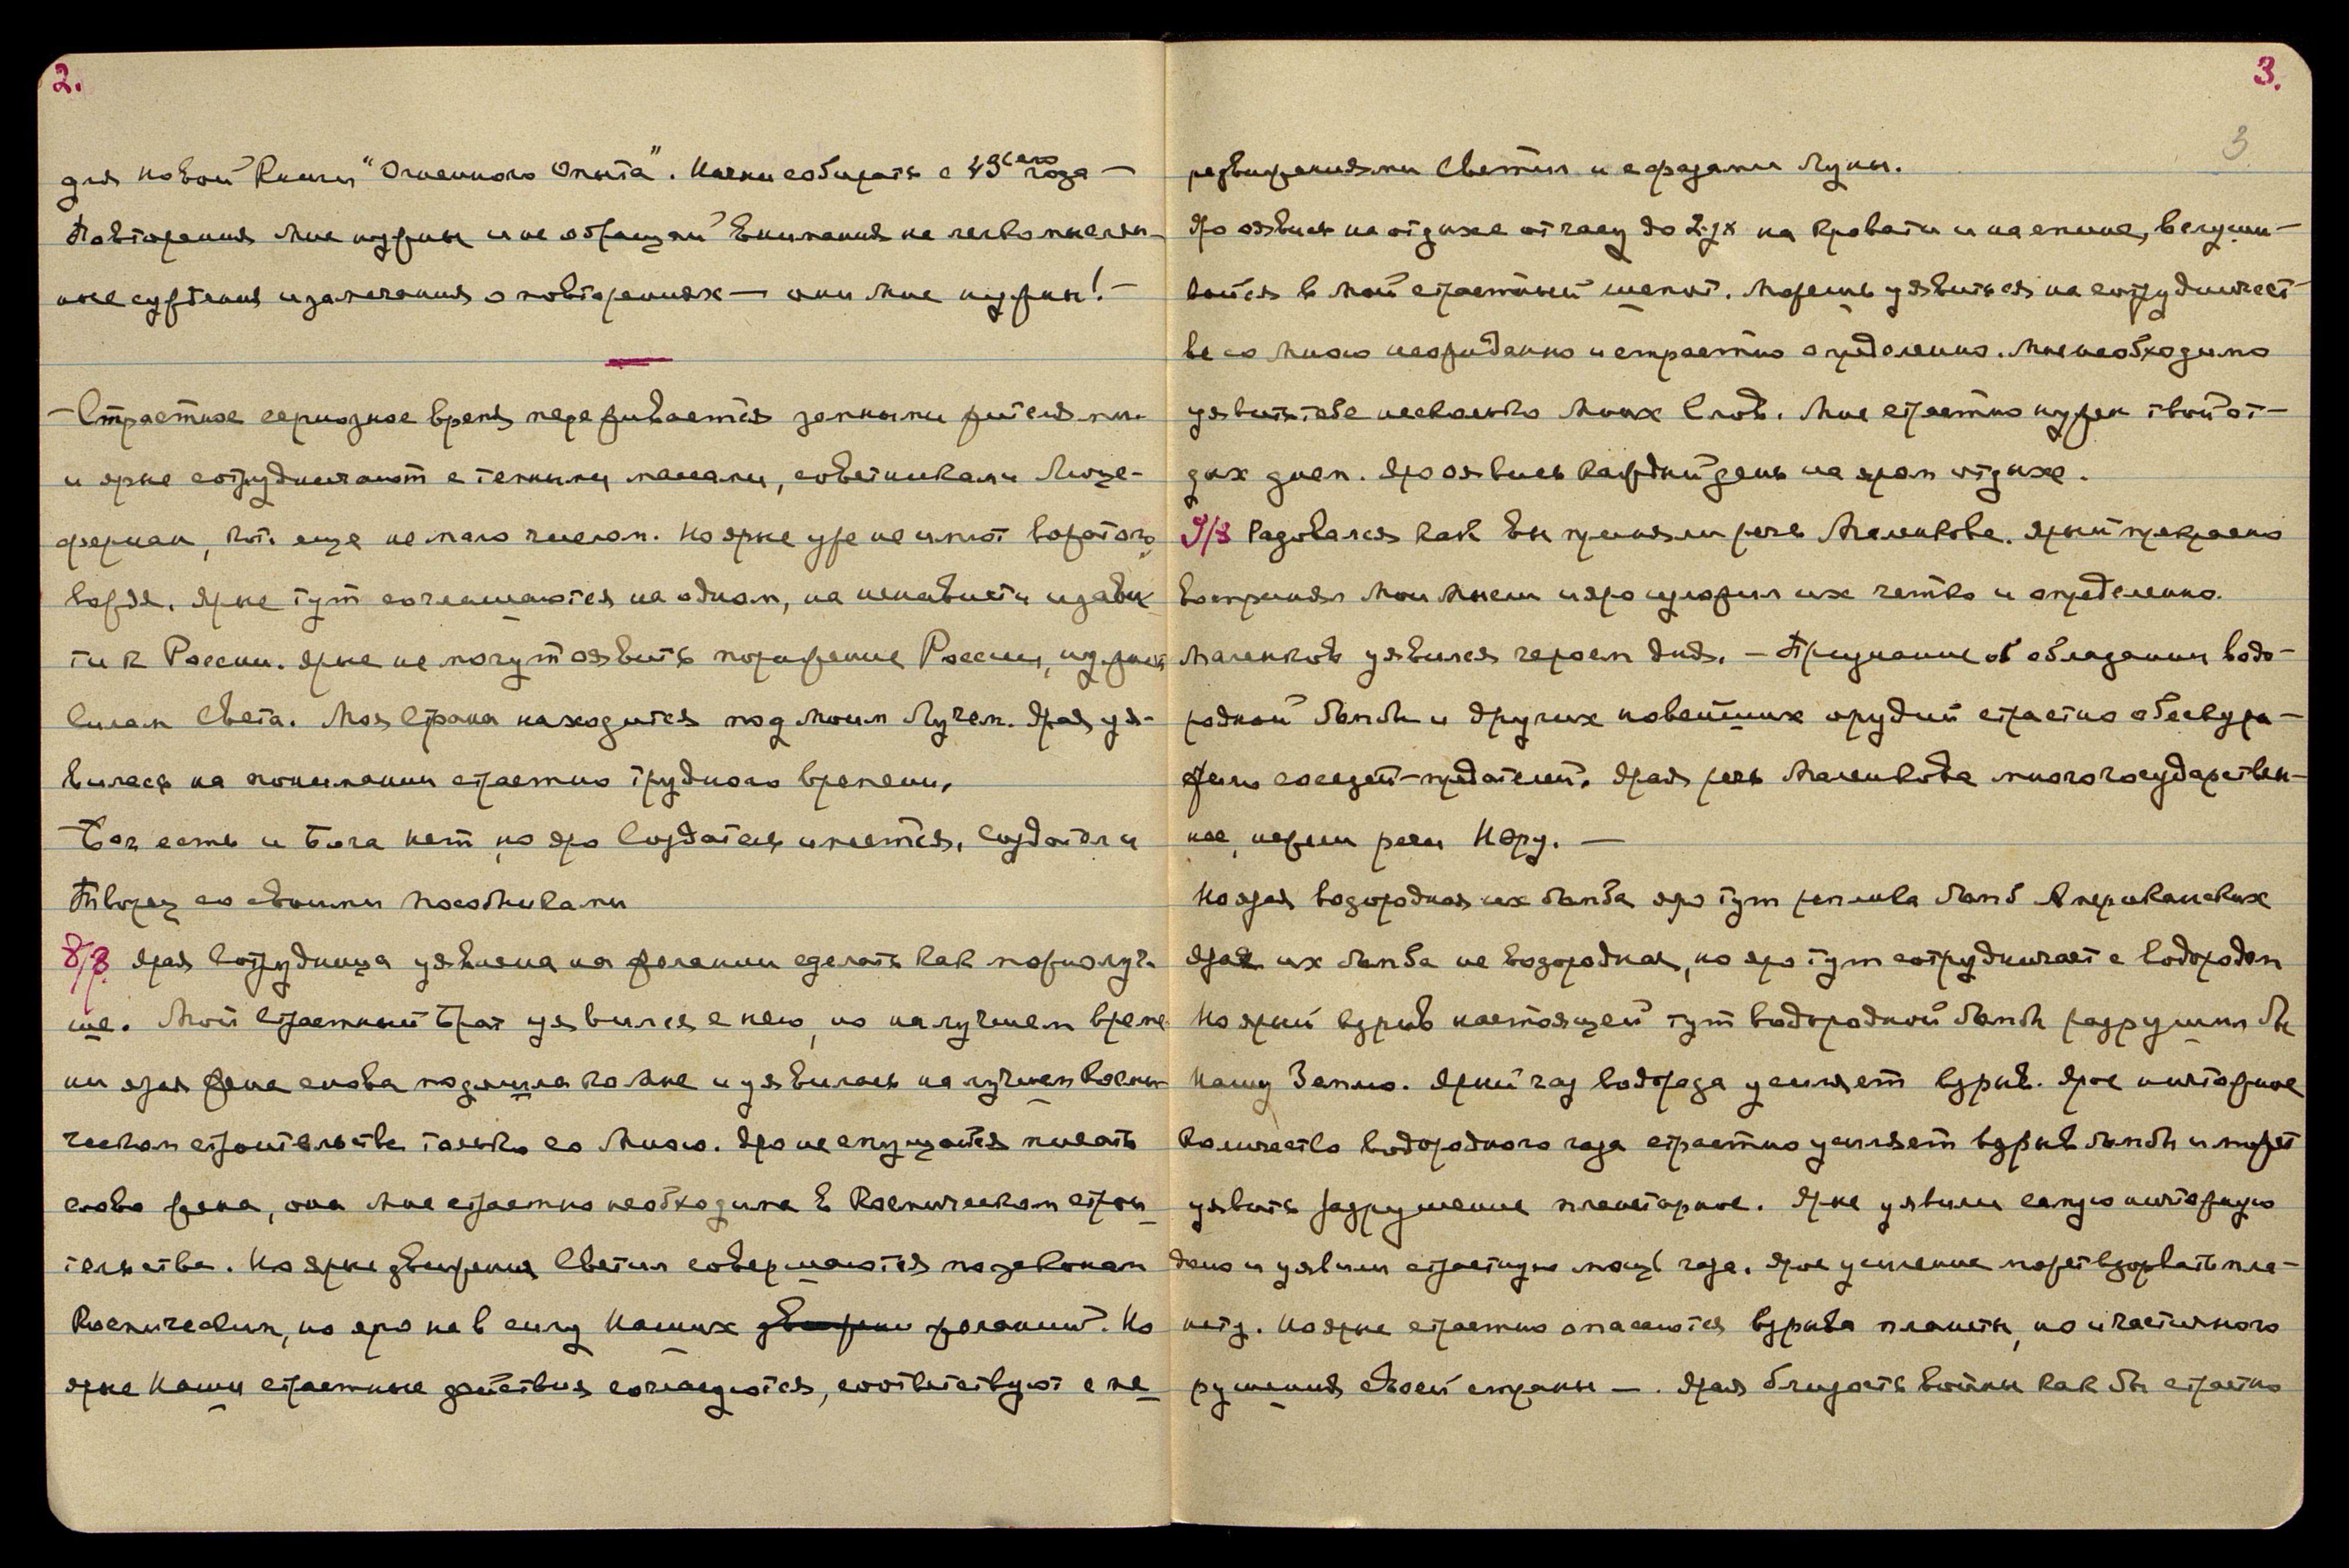 2.
для новой Книги "Огненного Опыта". Начни собирать с 49сего года —
Повторения Мне нужны и не обращай внимания на легкомыслен-
ные суждения и замечания о повторениях — они Мне нужны! —
— Страстное серьозное время переживается земными жителями
и ярые сотрудничают с темными силами, советниками Люце-
ферман, хотя еще не мало числом. Но ярые уже не имеют вожатого,
вождя. Ярые тут соглашаются на одном, на ненависти и завис
ти к России. Ярые не могут оявить поражение России, нужной
Силам Света. Моя Страна находится под Моим Лучем. Ярая уя-
вилась на понимании страстно трудного времени.
— Бог есть и Бога нет, но яро Создатель имеется, Создатель и
Творец со своими Пособниками
8/8 Ярая сотрудница уявлена на желании сделать как можно луч-
ше. Мой страстный Брат уявился с нею, но на лучшем време
ни ярая Жена снова подошла ко Мне и уявилась на лучшем косми-
ческом строительстве только со Мною. Яро не смущайся писать
слово жена, она Мне страстно необходима в Космическом строи
тельстве. Но ярые движения Светил совершаются по законам
Космическим, но яро не в силу Наших движени желаний. Но
ярые Наши страстные действия согласуются, соответствуют с пе
3.
3
редвижениями Светил и с фазами Луны.
Яро оявись на отдыхе от часу до 2-ух на кровати и на спине, вслуши-
вайся в Мой страстный шепот. Можешь уявиться на сотрудничест-
ве со Мною неожиданно и страстно определенно. Мне необходимо
уявить тебе несколько Моих Слов. Мне страстно нужен твой от-
дых днем. Яро оявись каждый день на яром отдыхе.
9/8 Радовался как вы приняли речь Маленкова. Ярый прекрасно
воспринял Мои Мысли и яро изложил их четко и определенно.
Маленков уявился героем дня. — Признание об обладании водо-
родной бомбы и других новейших орудий страстно обескура-
жило соседей-предателей. Ярая речь Маленкова много государствен-
нее, нежели речи Неру. —
Но ярая водородная их бомба яро тут реплика бомб Американских
Ярая их бомба не водородная, но яро тут сотрудничает с водородом
Но ярый взрыв настоящей тут водородной бомбы разрушил бы
Нашу Землю. Ярый газ водорода усиляет взрыв. Ярое ничтожное
количество водородного газа страстно усиляет взрыв бомбы и может
уявить разрушение планетарное. Ярые уявили самую ничтожную
дозу и уявили страстную мощь газа. Ярое усиление может взорвать пла-
нету. Но ярые страстно опасаются взрыва планеты, но и частичного
рушения своей страны —. Ярая близость войны как бы страстно